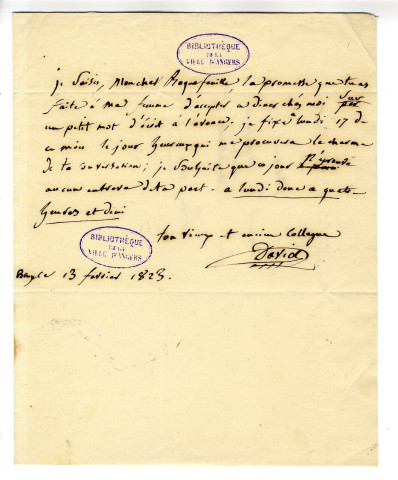 BIBLIOTHÈQUE
DE LA
VILLE D'ANGERS
je saisis, Mon cher Roquefeuille, la promesse que tu as
faite à ma femme d'accepter a diner chés moi sur
un petit mot d'écrit à l'avance; je fixe a lundi 17 de
ce mois le jour heureux qui me procurera le charme
de ta conversation; je souhaite que ce jour n'éprouve
aucun entrave de ta part. a lundi donc a quatre
heures et demi
ton vieux et ancien collegue
David
BIBLIOTHÈQUE
DE LA
VILLE D'ANGERS
13 fevrier 1823.